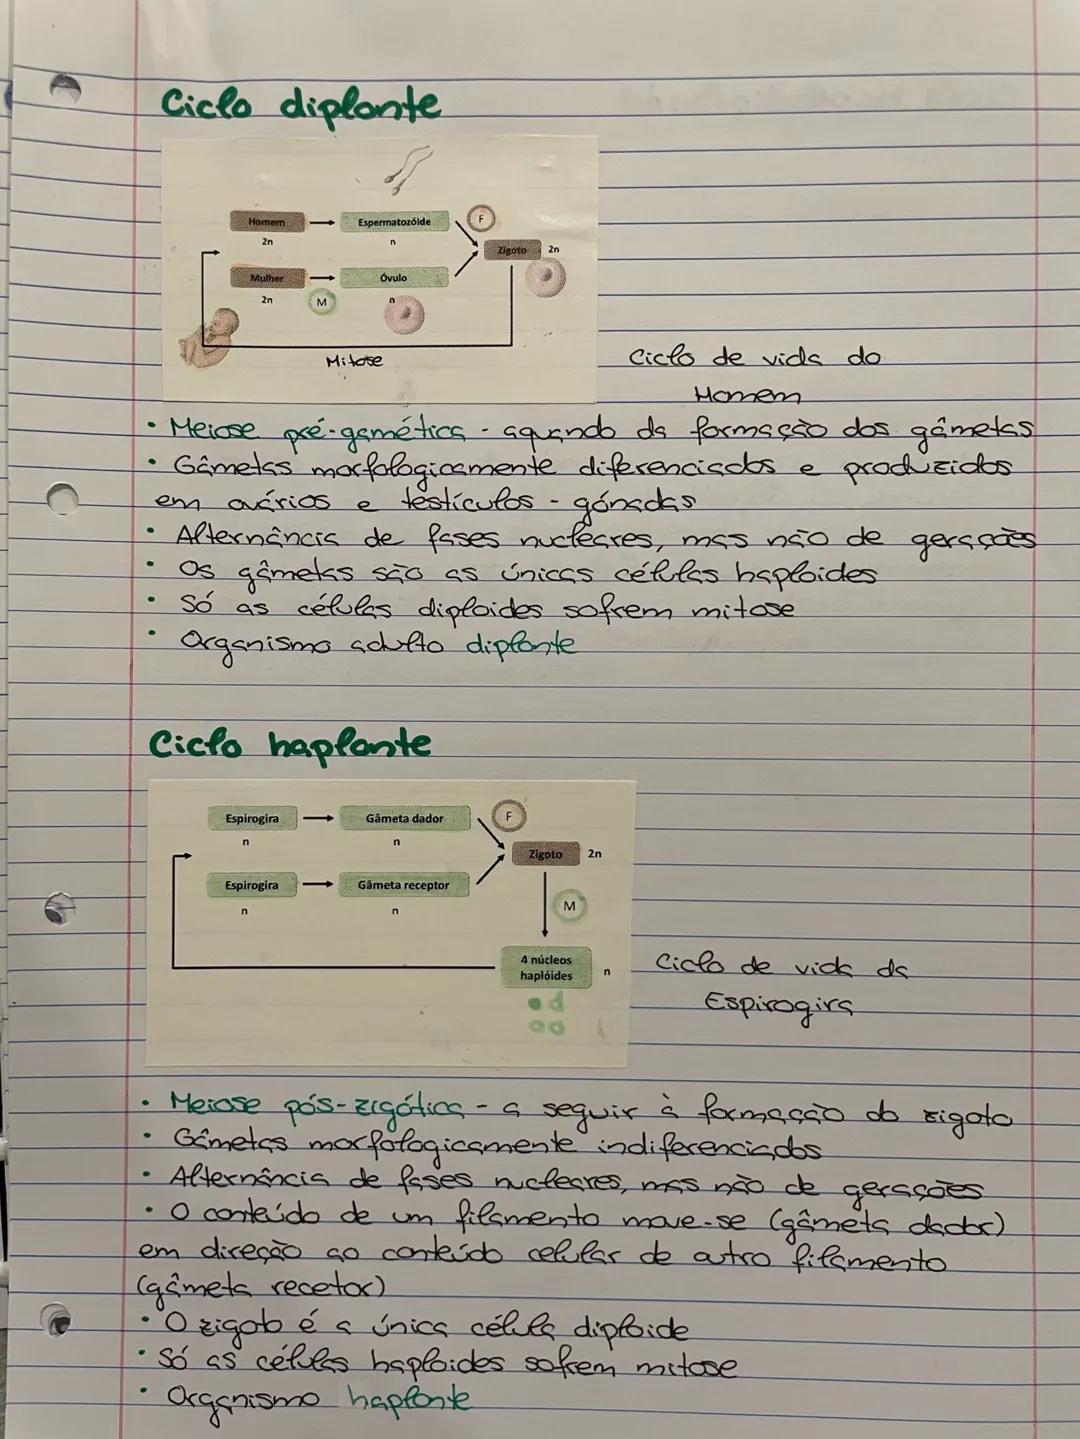 Ciclo diplonte
Homem
2n
Espermatozóide
n
F
Zigoto
2n
Mulher
2n
M
Óvulo
n
Mitose
Ciclo de vida do
Homem
• Meiose pré-gamética - aquando da formação dos gâmetas
• Gâmetas morfologicamente diferenciados e produzidos
em ovários e testículos - gónadas
• Alternância de fases nucleares, mas não de gerações
• Os gâmetas são as únicas células haploides
• Só as células diploides sofrem mitose
• Organismo adulto diplonte
Ciclo haplonte
Espirogira
n
Gâmeta dador
n
F
Zigoto
2n
Espirogira
n
Gâmeta receptor
n
M
4 núcleos
haplóides
n
Ciclo de vida da
Espirogira
• Meiose pós-zigótica - a seguir à formação do zigoto
• Gâmetas morfologicamente indiferenciados
• Alternância de fases nucleares, mas não de gerações
• O conteúdo de um filamento move-se (gâmeta dador)
em direção ao conteúdo celular de outro filamento
(gâmeta recetor)
• O zigoto é a única célula diploide
• Só as células haploides sofrem mitose
• Organismo haplonte